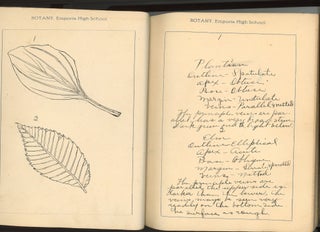 BOTANY. Emporia High School
1
2
BOTANY. Emporia High School
1
Plantain
Outline - Spatulate
Apex - Obtuse
Base - Obtuse
Margin - Undulate
Veins - Parallel
The principle veins are par-
allel, has a very rough stem
dark green and a light below
2
Elm
Outline - Elliptical
Apex - Acute
Base - Oblique
Margin -
Veins - Netted
The principle veins are
parallel, the upper side is
darker than the lower, the
veins may be seen very
readily on the bottom side
The surface is rough